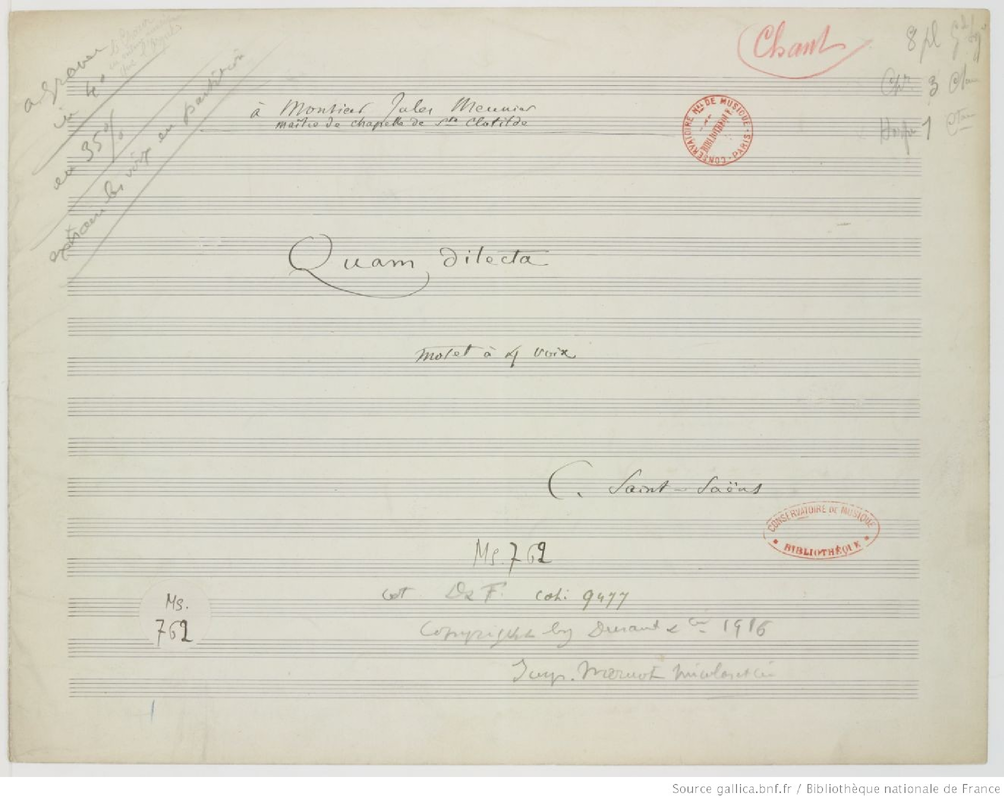 à graver
in 4º
en 35%
extraire les voix en partition
Chant
8 pl
3
1
à Monsieur Jules Meunier
maître de chapelle de Ste Clotilde
CONSERVATOIRE NAL DE MUSIQUE · PARIS ·
BIBLIOTHÈQUE
Quam dilecta
motet à 4 voix
C. Saint-Saëns
CONSERVATOIRE DE MUSIQUE
BIBLIOTHÈQUE
Ms. 762
cot D & F. cot: 9477
Ms.
762
Copyright by Durand & Cie 1916
Imp.
Source gallica.bnf.fr / Bibliothèque nationale de France